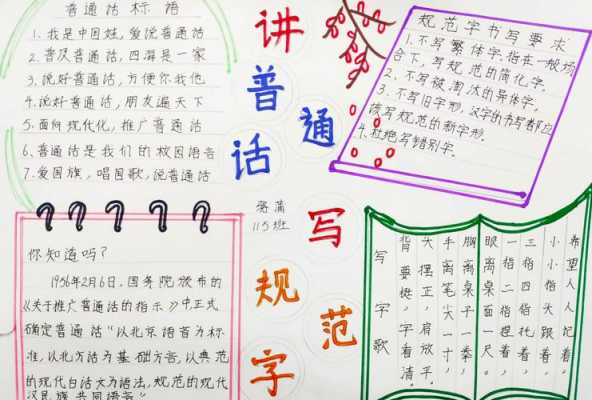 普通话标语
1. 我是中国娃,爱说普通话
2. 普及普通话,四海是一家
3. 说好普通话,方便你我他
4. 说好普通话,朋友遍天下
5. 面向现代化,推广普通话
6. 普通话是我们的校园语言
7. 爱国旗,唱国歌,说普通话
讲
普通
话
115班
写
规范
字
规范字书写要求
1. 不写繁体字.指在一般场
合下,写规范的简化字.
2. 不写被淘汰的异体字.
3. 不写旧字形,汉字的书写都应
该写规范的新字形.
4. 杜绝写错别字.
你知道吗?
1956年2月6日,国务院颁布的
《关于推广普通话的指示》中正式
确定普通话“以北京语音为标
准,以北方话为基础方言,以典范
的现代白话文为语法,规范的现代
汉民族共同语言”
写字歌
背要挺,字看清。
大摆正,肩放平,
手离笔大一十,
胸离桌子一拳,
眼离桌面一尺。
一指二指捏着,
三指四指托着,
小小指头跟着,
希望人人记着